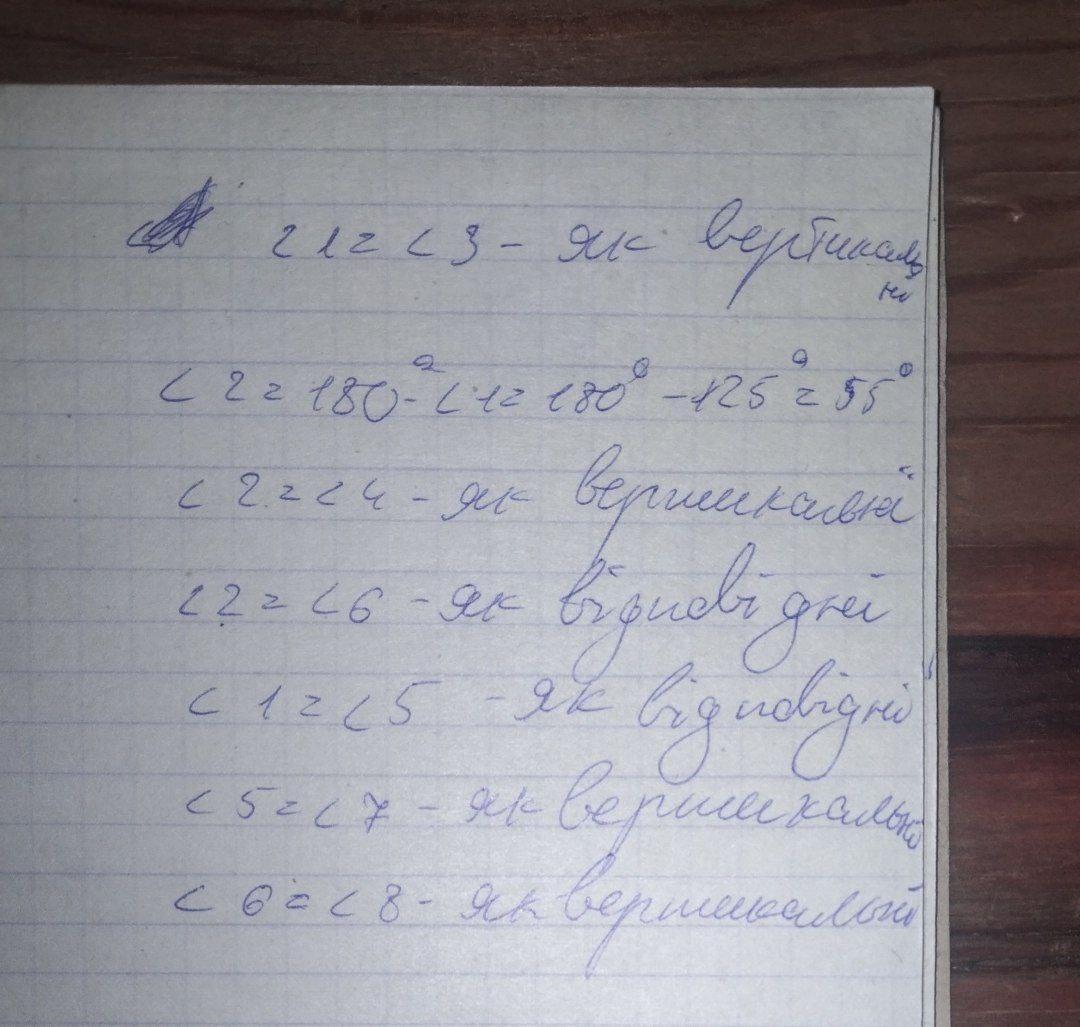 ∠1=∠3 - як вертикаль
ні
∠2=180°-∠1=180°-125°=55°
∠2=∠4 - як вертикальні
∠2=∠6 - як відповідні
∠1=∠5 - як відповідні
∠5=∠7 - як вертикальні
∠6=∠8 - як вертикальні